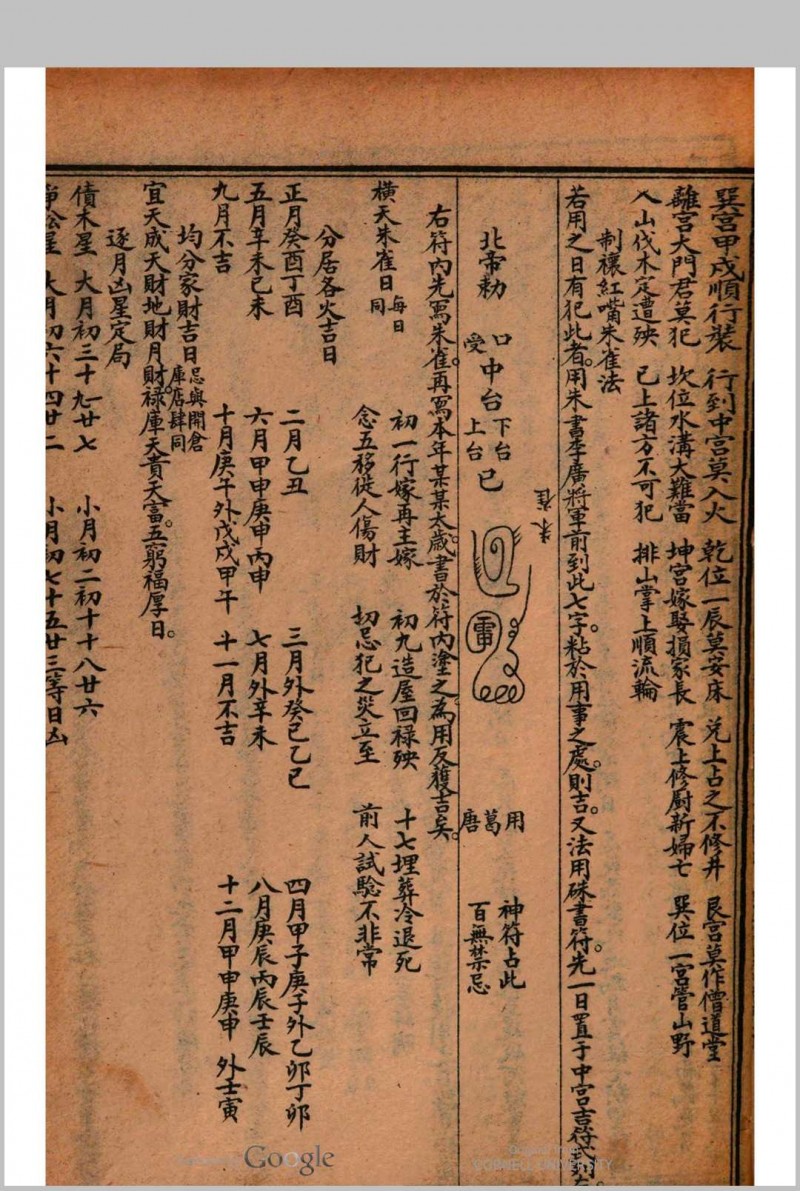 巽宮甲戌順行裝 行到中宮莫入火 乾位一辰莫安床 兌上占之不修井 艮宮莫作僧道堂
離宮大門君莫犯 坎位水溝大難當 坤宮嫁娶損家長 震上修廚新婦七 巽位一宮管山野
入山伐木定遭殃 已上諸方不可犯 排山掌上順流輪
制禳紅嘴朱雀法
若用之日有犯此者。用朱書李廣將軍前到此七字。粘於用事之處。則吉。又法用硃書符。先一日置于中宮吉符式列左
北帝勅 口受 中台 下台 上台 已
朱雀
雷
用葛唐
神符占此
百無禁忌
右符內先寫朱雀。再寫本年某某太歲。書於符內塗之。為用反獲吉矣。
橫天朱雀日 每日同
初一行嫁再主嫁 初九造屋回祿殃 十七埋葬冷退死
念五移徙人傷財 切忌犯之災立至 前人試驗不非常
分居各火吉日
正月癸酉丁酉 二月乙丑 三月外癸巳乙巳 四月甲子庚子外乙卯丁卯
五月辛未已未 六月甲申庚申丙申 七月外辛未 八月庚辰丙辰壬辰
九月不吉 十月庚午外戊戌甲午 十一月不吉 十二月甲申庚申 外壬寅
均分家財吉日 忌與開倉庫店肆同
宜天成天財地財月財。祿庫天貴天富。五窮福厚日。
逐月凶星定局
債木星 大月初三十九廿七 小月初二初十十八廿六
爭訟星 大月初六十四廿二 小月初七十五廿三等日凶
Google
CORNELL UNIVERSITY